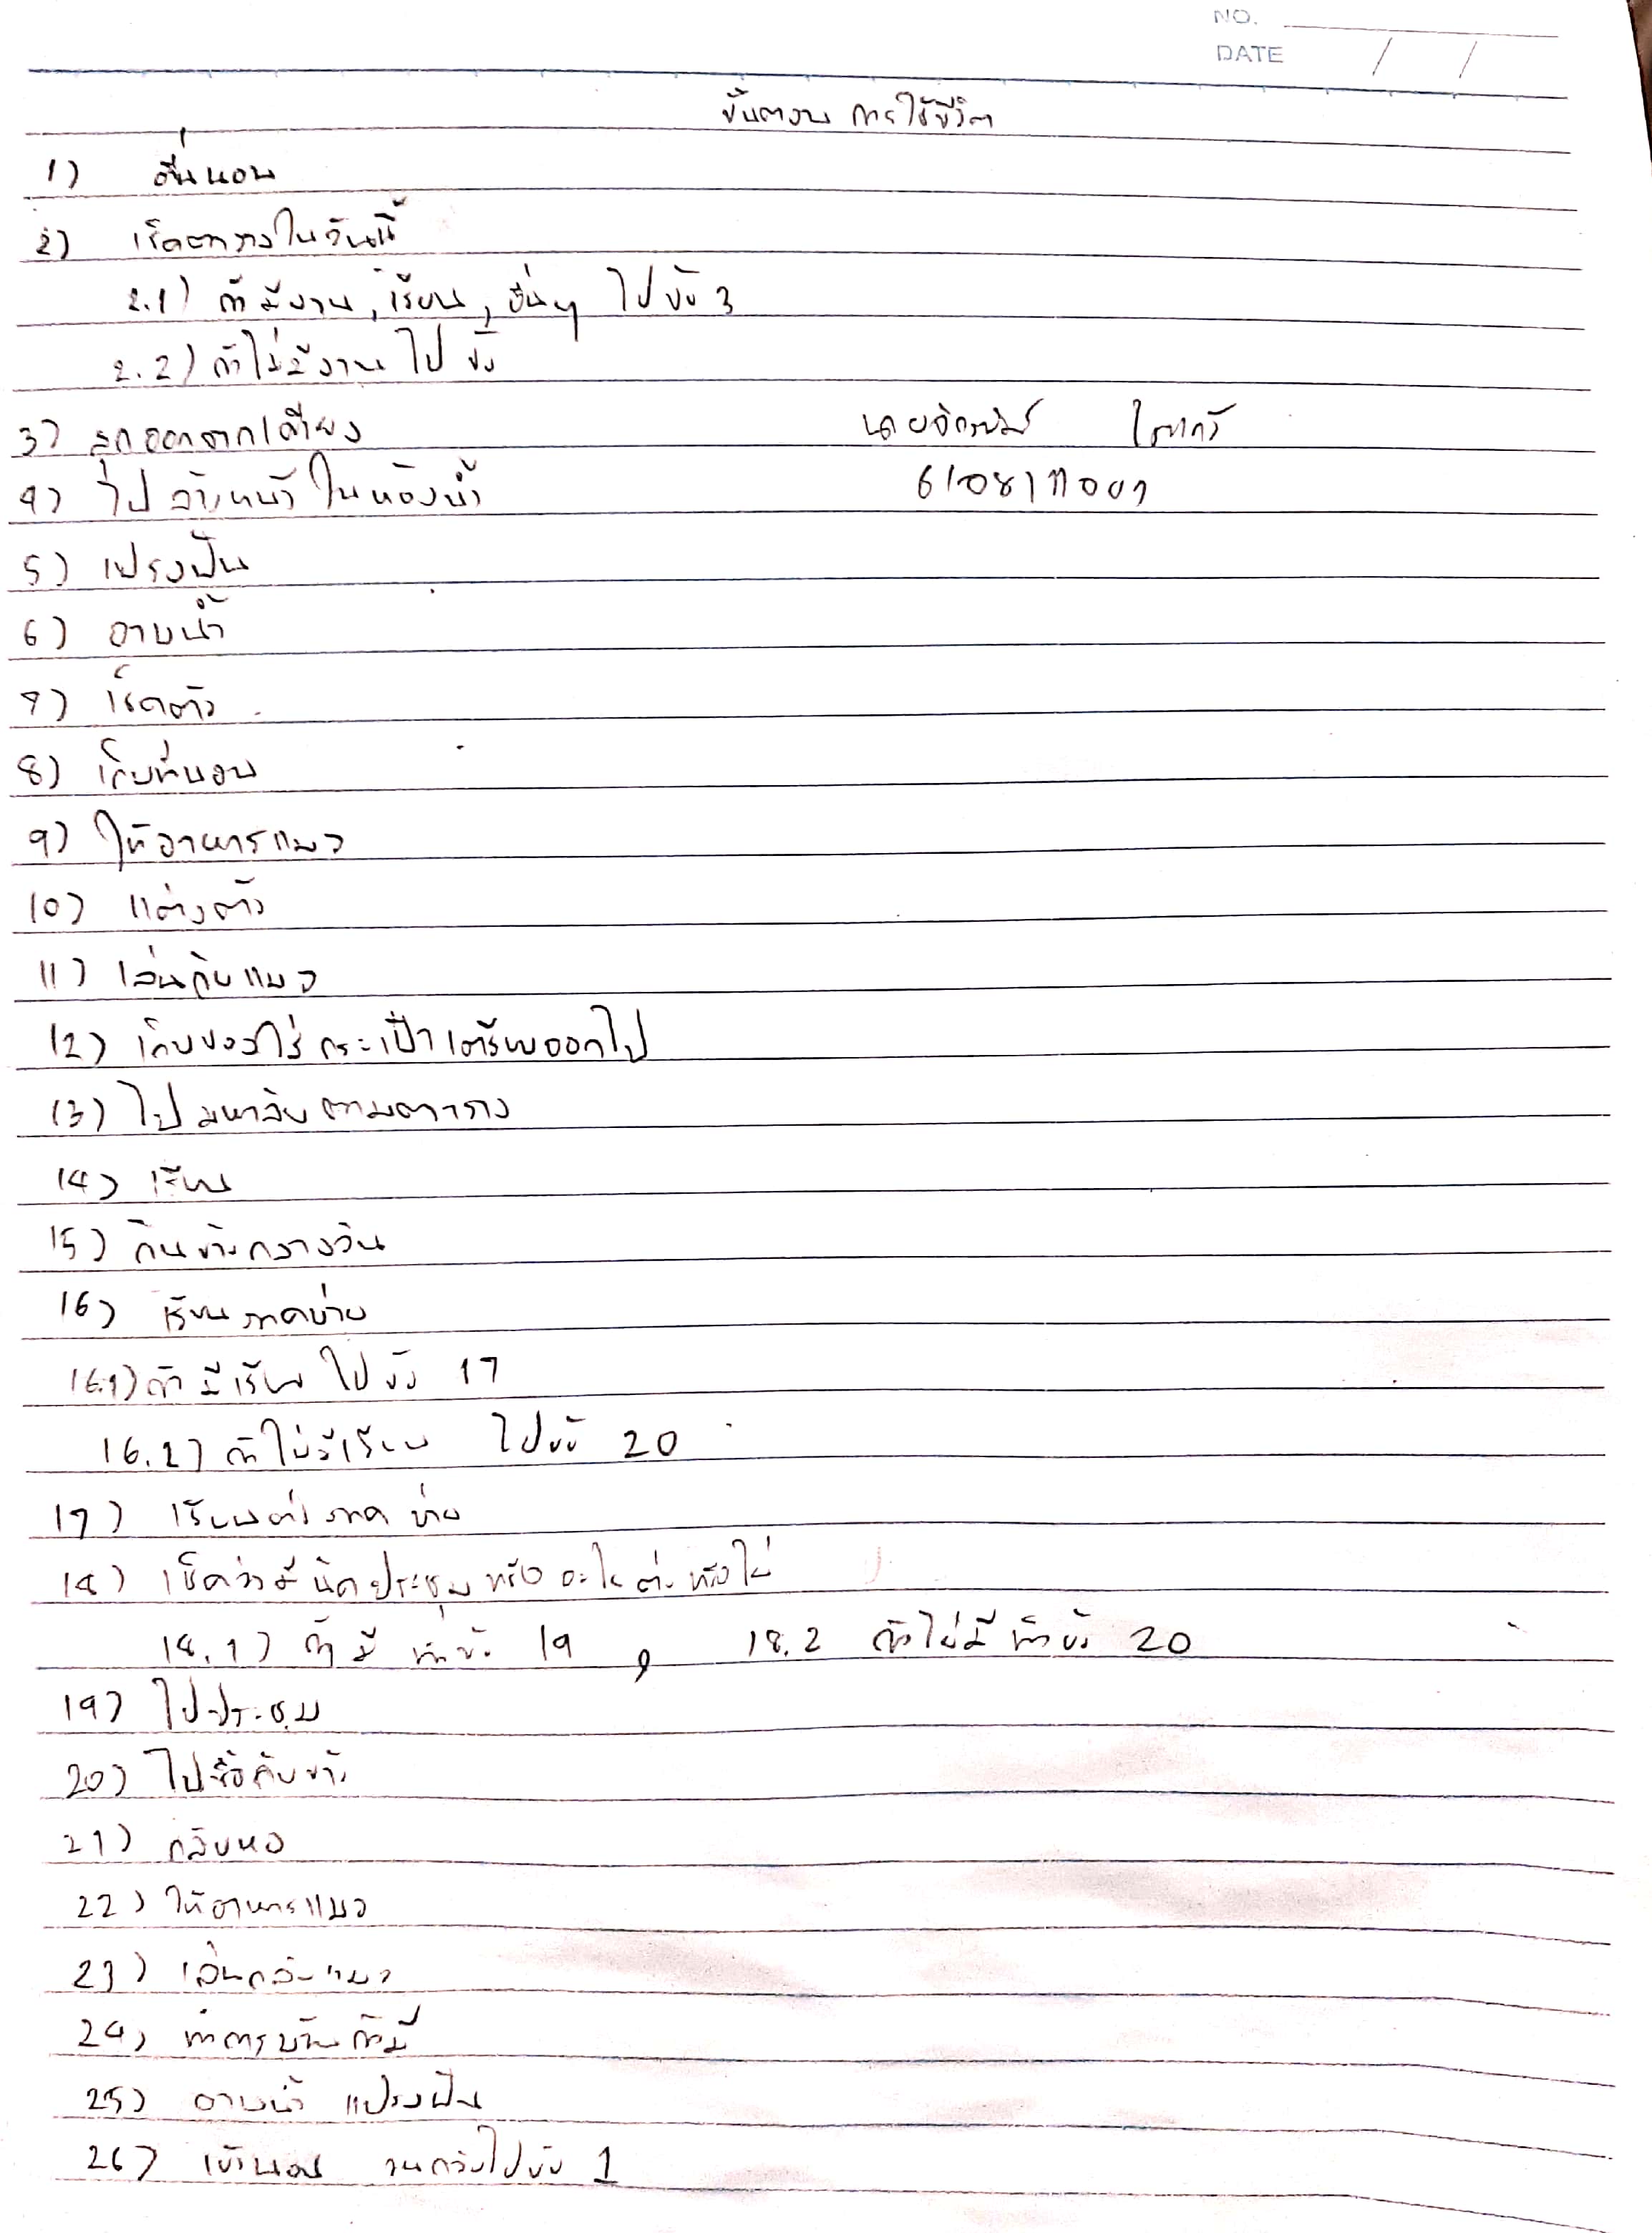 NO.
DATE / /
ขั้นตอน การใช้ชีวิต
1) ตื่นนอน
2) เช็คตารางในวันนี้
2.1) ถ้ามีงาน, เรียน, อื่นๆ ไปข้อ 3
2.2) ถ้าไม่มีงาน ไป ข้อ
3) ลุกออกจากเตียง
นาย
4) ไปล้างหน้าในห้องน้ำ
5) แปรงฟัน
6) อาบน้ำ
7) เช็ดตัว
8) เก็บที่นอน
9) ให้อาหารแมว
10) แต่งตัว
11) เล่นกับแมว
12) เก็บของใส่กระเป๋าเตรียมออกไป
13) ไปมหาลัยตามตาราง
14) เรียน
15) กินข้าวกลางวัน
16) เรียนภาคบ่าย
16.1) ถ้ามีเรียน ไปข้อ 17
16.2) ถ้าไม่มีเรียน ไปข้อ 20
17) เรียนต่อภาคบ่าย
18) เช็คว่ามีนัดประชุมหรืออะไรต่อหรือไม่
18.1) ถ้ามี ทำข้อ 19 , 18.2 ถ้าไม่มี ทำข้อ 20
19) ไปประชุม
20) ไปซื้อกับข้าว
21) กลับหอ
22) ให้อาหารแมว
23) เล่นกับแมว
24) ทำการบ้านถ้ามี
25) อาบน้ำ แปรงฟัน
26) เข้านอน วนกลับไปข้อ 1